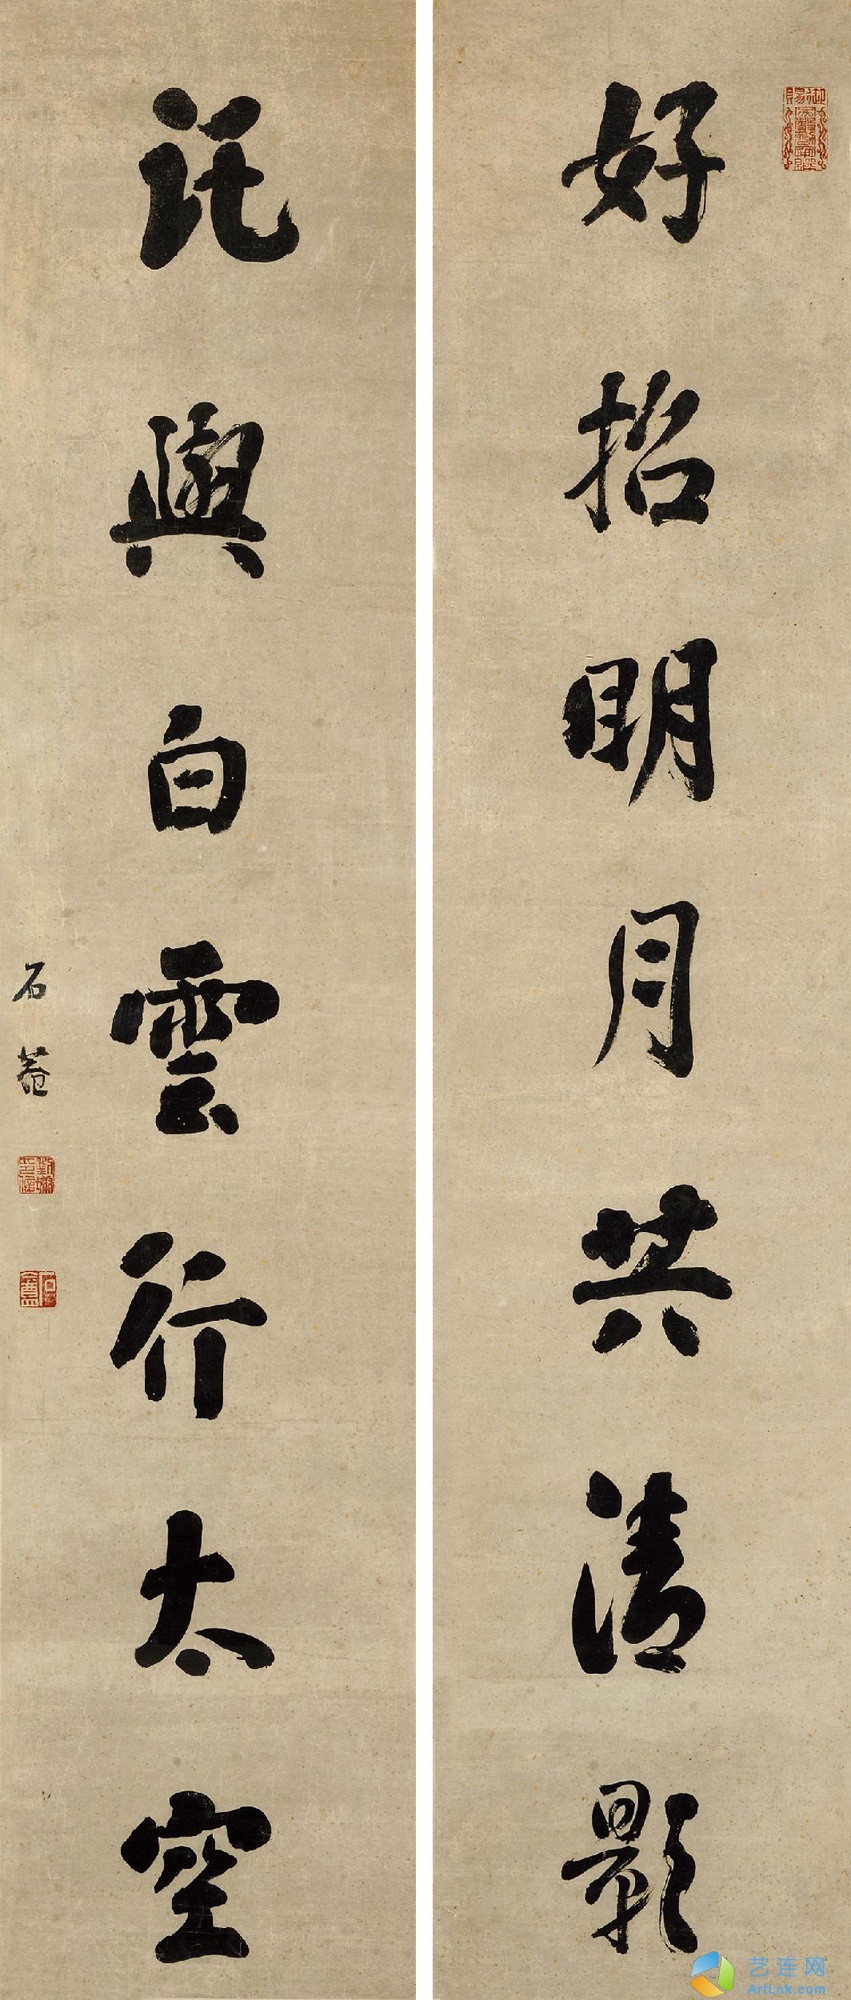 好招明月共清影
託與白雲行太空
石菴
艺连网
ArtLnk.com